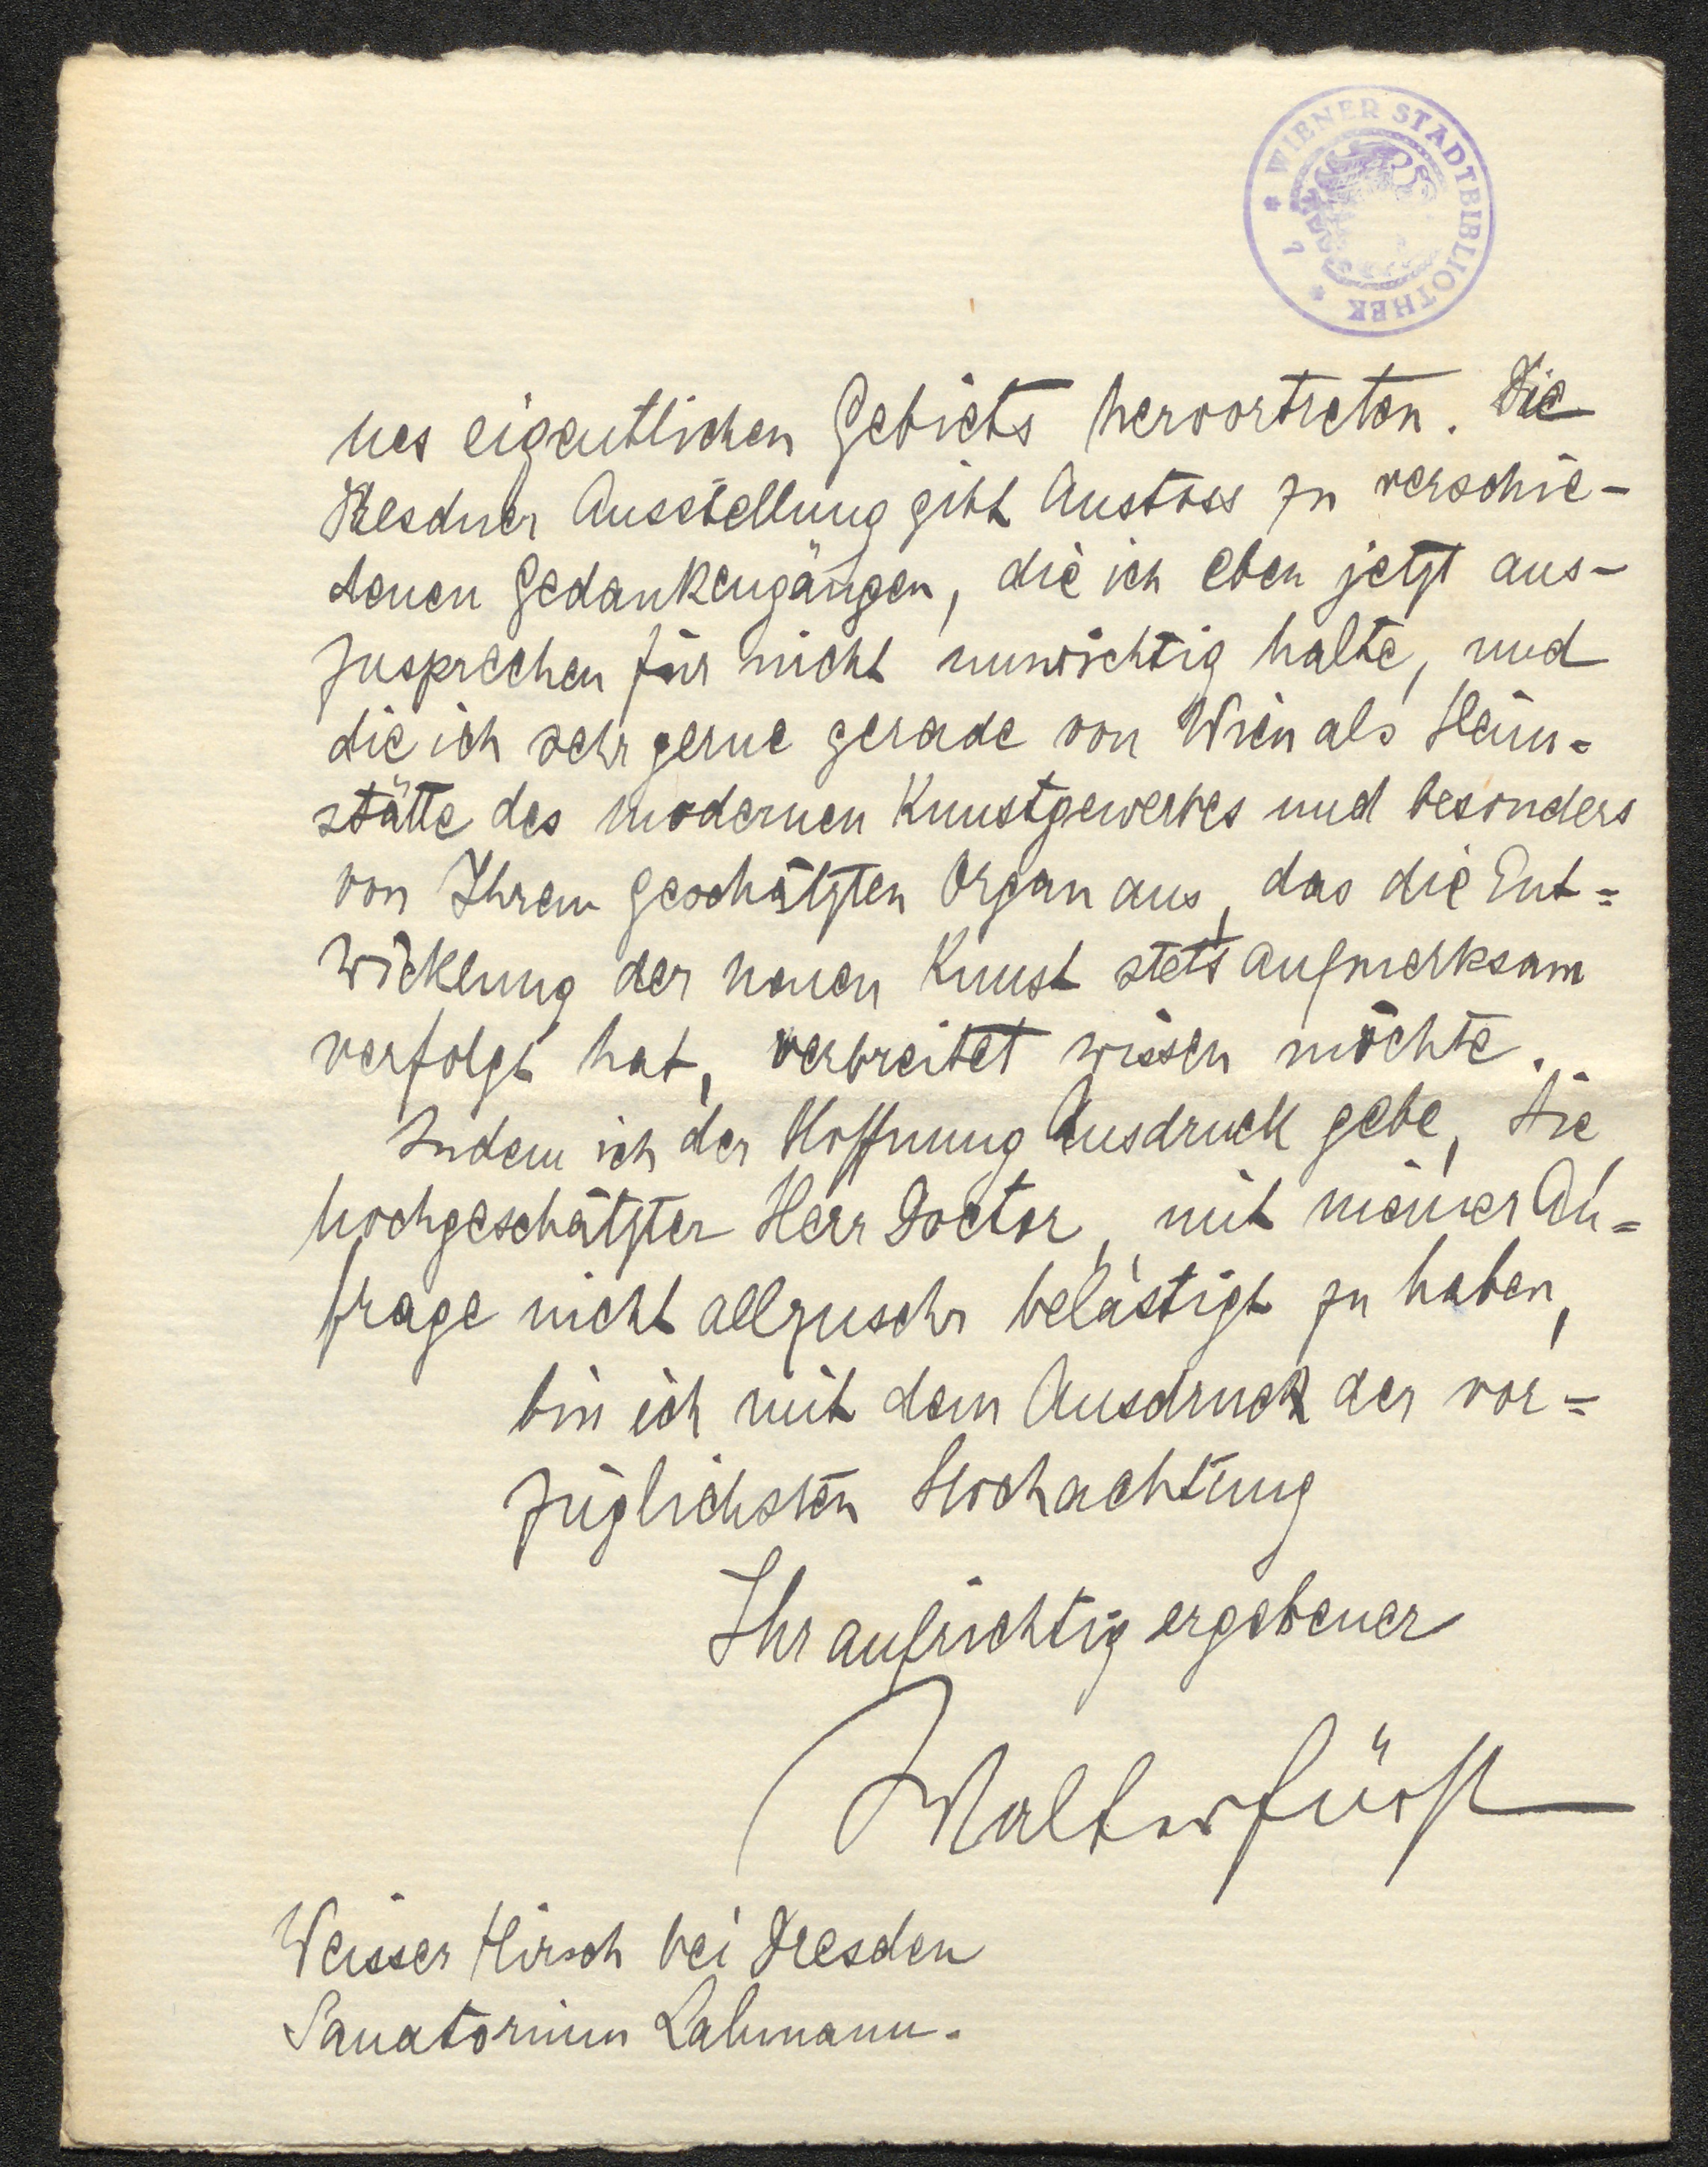 WIENER STADTBIBLIOTHEK
nes eigentlichen Gebiets hervortreten. Die
Dresdner Ausstellung gibt Anstoss zu verschie-
denen Gedankengängen, die ich eben jetzt aus-
zusprechen für nicht unwichtig halte, und
die ich sehr gerne gerade von Wien als Heim=
stätte des modernen Kunstgewerbes und besonders
von Ihrem geschätzten Organ aus, das die Ent=
wicklung der neuen Kunst stets aufmerksam
verfolgt hat, verbreitet wissen möchte.
Indem ich der Hoffnung Ausdruck gebe, Sie
hochgeschätzter Herr Doctor, mit meiner An=
frage nicht allzusehr belästigt zu haben,
bin ich mit dem Ausdruck der vor=
züglichsten Hochachtung
Ihr aufrichtig ergebener
Walter Fürst
Weisser Hirsch bei Dresden
Sanatorium Lahmann.